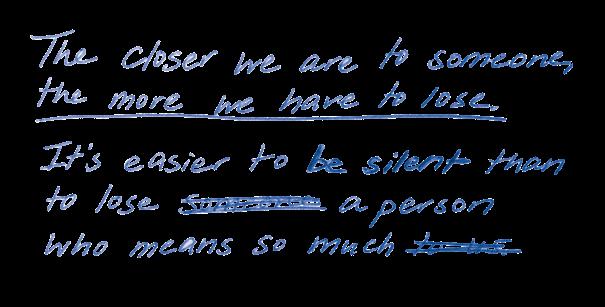 The closer we are to someone,
the more we have to lose.
It's easier to be silent than
to lose someone a person
who means so much to us.